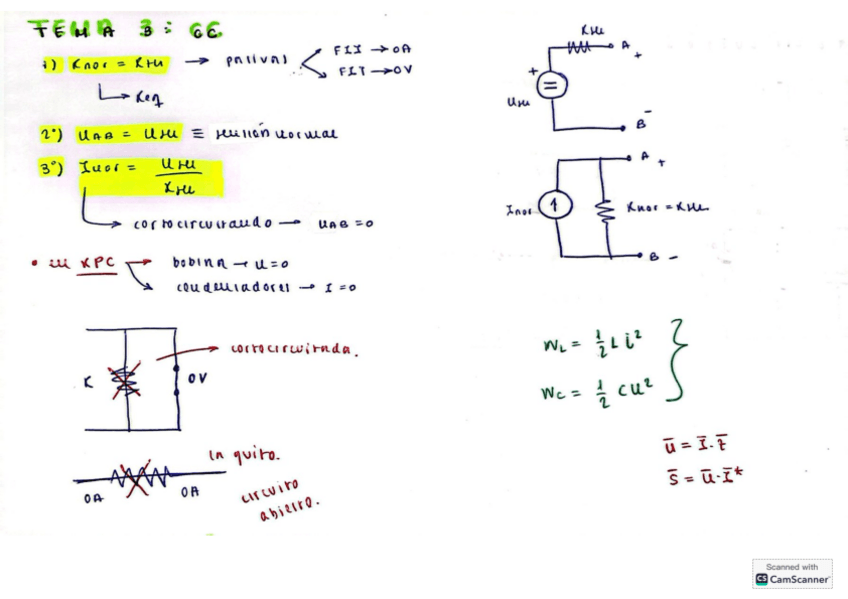 TEMA 3: CC
1) Rnor = RTH → pasivas FII → 0A
FIT → 0V
Req
2º) UAB = UTH ≡ tensión normal
3º) Inor = UTH / RTH
cortocircuitando → UAB = 0
• en RPC → bobina → U = 0
condensadores → I = 0
cortocircuitada.
R
0V
la quito.
0A
0A
circuito
abierto.
RTH
A +
+
UTH
B -
A +
Inor
Rnor = RTH
B -
WL = 1/2 L i²
WC = 1/2 C U²
u̅ = I̅ · Z̅
S̅ = u̅ · I̅*
Scanned with
CS CamScanner